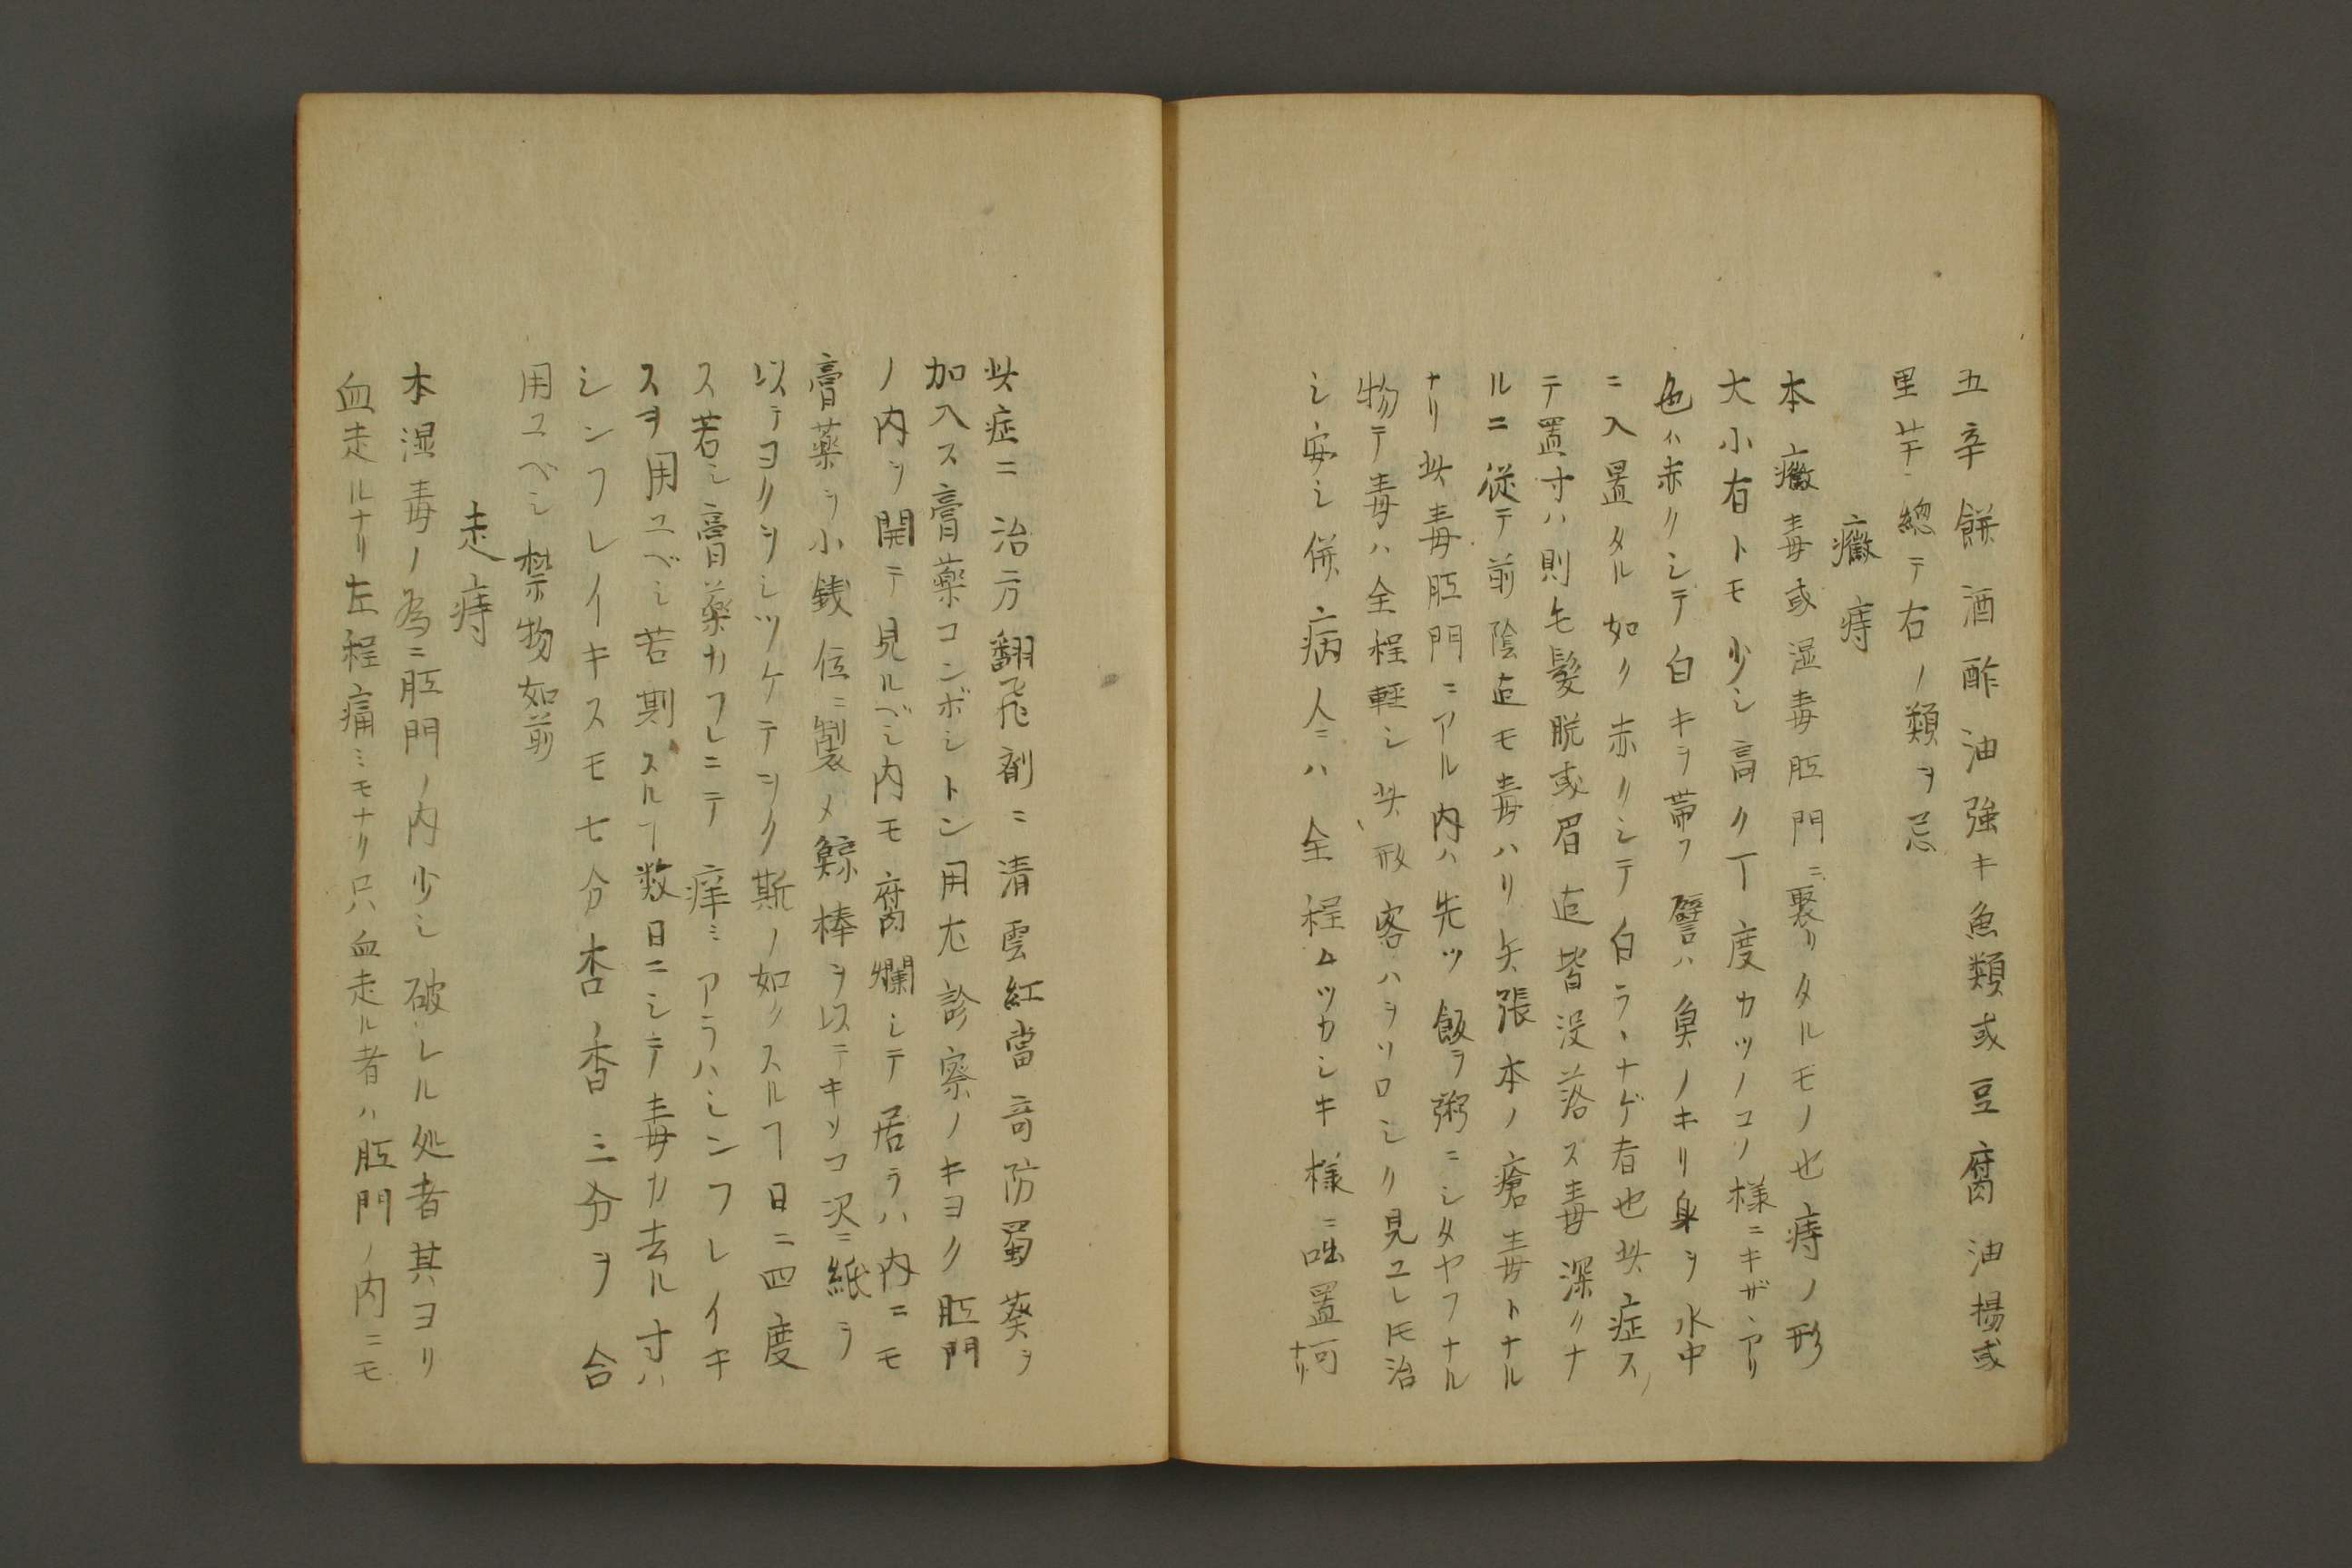 五辛餅酒酢油強キ魚類或豆腐油揚或
里芋総テ右ノ類ヲ忌
癥痔
本癥毒或湿毒肛門ニ裏リタルモノ也痔ノ形
大小有トモ少シ高ク丁度カツノコノ様ニキザ、アリ
色ハ赤クシテ白キヲ帯フ譬ハ魚ノキリ身ヲ水中
ニ入置タル如ク赤クシテ白ラヽナゲ者也此症ス
テ置寸ハ則毛髪脱或眉迄皆没落ス毒深クナ
ルニ従テ前陰迄モ毒ハリ矢張本ノ瘡毒トナル
ナリ此毒肛門ニアル内ハ先ツ飯ヲ粥ニシタヤフナル
物テ毒ハ全程軽シ此形客ハヲソロシク見ユレ𪜈治
シ安シ併病人ニハ全程ムツカシキ様ニ咄置可ナリ
此症ニ治方翻飛剤ニ清雲紅當奇防蜀葵ヲ
加入ス膏薬コンボシトン用尤診察ノキヨク肛門
ノ内ヲ開テ見ルベシ内モ腐爛シテ居ラハ内ニモ
膏薬ヲ小銭位ニ製メ鯨棒ヲ以テキソコ沢ニ紙ヲ
以テヨクヲシツケテヲク斯ノ如クスルヿ日ニ四度
ス若シ膏薬カフレニテ痒ミアラハシンフレイキ
スヲ用ユベシ若斯スルヿ数日ニシテ毒カ去ル寸ハ
シンフレイキスモ七分杏ノ香三分ヲ合
用ユベシ禁物如前
走痔
本湿毒ノ為ニ肛門ノ内少シ破レル処者其ヨリ
血走ルナリ左程痛ミモナク只血走ル者ハ肛門ノ内ニモ